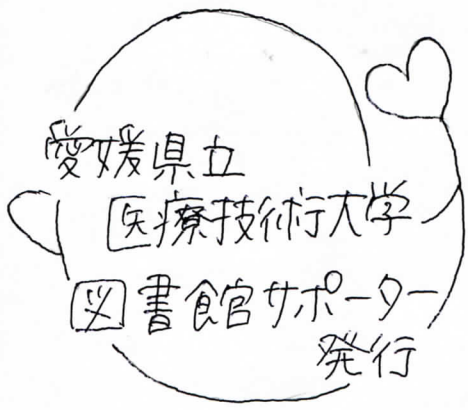 愛媛県立
医療技術大学
図書館サポーター
発行